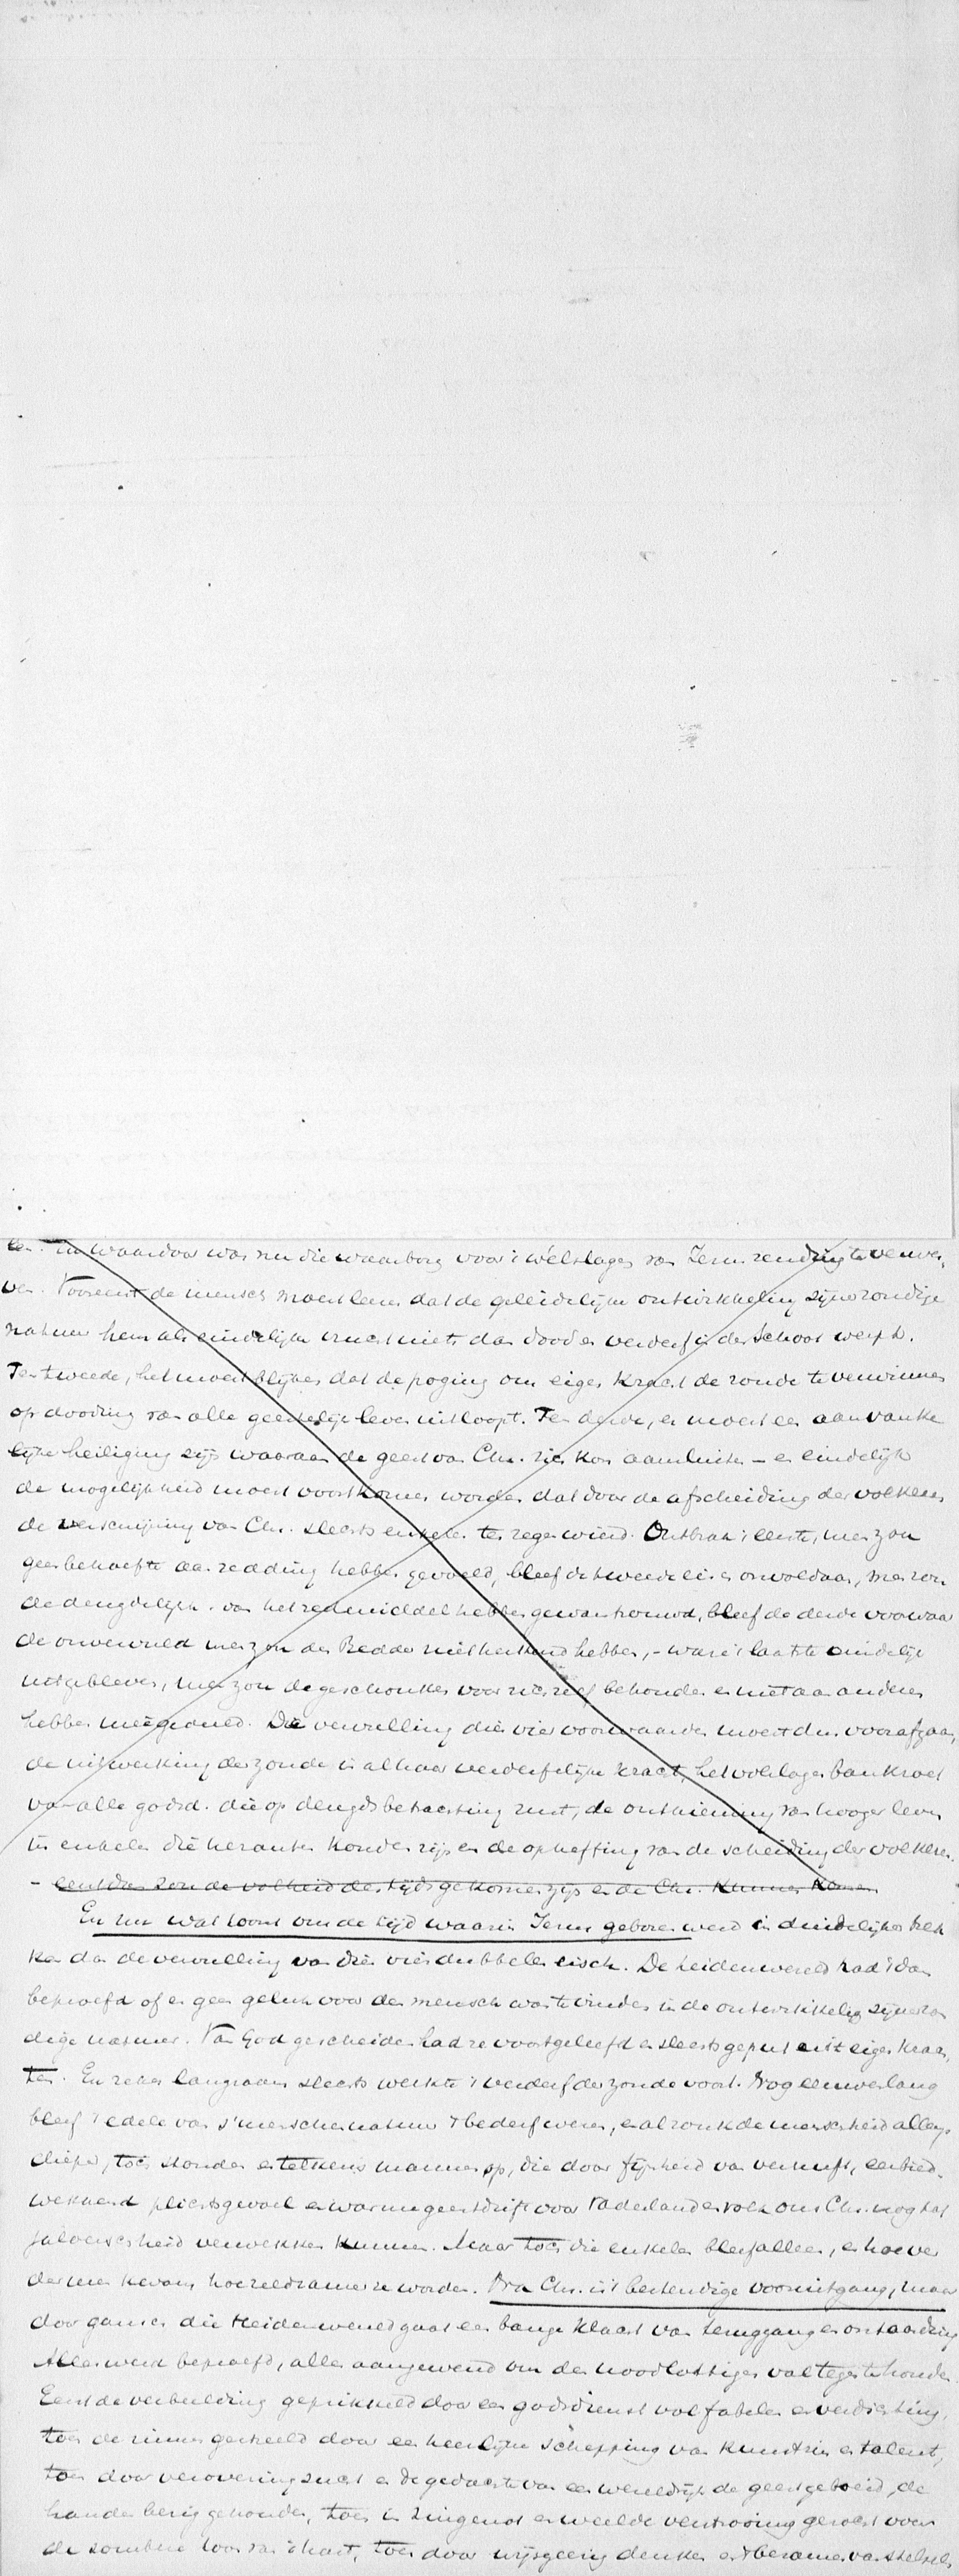 len. En waardoor was nu die waarborg voor 't welslagen van Jezus zending te verwer,
ven. Vooreerst de mensch moest leeren dat de geleidelijke ontwikkeling zijner zondige
natuur hem als eindelijke vrucht niets dan dood en verderf in den schoot werpt.
Ten tweede, het moest blijken dat de poging om eigen kracht de zonde te verwinnen
op dooding van alle geestelijk leven uitloopt. Ten derde, er moest een aanvanke
lijke heiliging zijn waaraan de geest van Chr. zich kon aansluiten – en eindelijk
de mogelijkheid moest voorkomen worden dat door de afscheiding der volkeren
de verschijning van Chr. slechts enkelen ten zegen wierd. Ontbrak 't eerste, men zou
geen behoefte aan redding hebben gevoeld, bleef de tweede eisch onvoldaan, men zou
de deugdelijkh. van het redmiddel hebben gewantrouwd, bleef de derde voorwaar
de onvervuld men zou den Redder niet herkend hebben, – ware 't laatste eindelijk
uitgebleven, men zou de geschonken voor zich zelf behouden en niet aan anderen
hebben meêgedeeld. De vervulling dier vier voorwaarden moest dus voorafgaan,
de uitwerking der zonde in al haar verderfelijke kracht, het volslagen bankroet
van alle godsd. die op deugdsbetrachting rust, de ontkieming van hooger leven
in enkelen die heranten konden zijn en de opheffing van de scheiding der volkeren.
– eerst dan zou de volheid des tijds gekomen zijn en de Chr. kunnen komen
En nu wat toont ons de tijd waarin Jezus geboren werd in duidelijker trek
ken dan de vervulling van dien vierdubbelen eisch. De heidenwereld had 't dan
beproefd of er geen geluk voor den mensch was te vinden in de ontwikkeling zijner zon
dige natuur. Van God gescheiden had ze voortgeleefd en slechts geput uit eigen krach,
ten. En zeker langzaam slechts werkte 't verderf der zonde voort. Nog eeuwenlang
bleef 't edele van s'menschen natuur 't bederf weren, en al zonk de menschheid allengs
dieper, toch stonden er telkens mannen op, die door fijnheid van vernuft, eerbied-
wekkend plichtsgevoel en warm geestdrift voor vaderland en volk ons Chr. nog tot
jaloerschheid verwekken kunnen. Maar toch die enkelen bleven alleen, en hoe ver
der men kwam hoe zeldzamer ze worden. Bra Chr. is 't bestendige vooruitgang, maar
door gansch die Heidenwereld gaat een bange klacht van teruggang en ontaarding
Alles werd beproefd, alles aangewend om den noodlottigen val tegen te houden.
Eerst de verbeelding geprikkeld door een godsdienst vol fabelen en verdichting,
toen de zinnen gestreeld door een heerlijke schepping van kunstzin en talent,
toen door veroveringzucht en de gedachte van een wereldrijk de geest geboeid, de
handen bezig gehouden, toen in zingenot en weelde verstrooiing gezocht voor
de sombere toon van 't hart, toen door wijsgeerig denken en 't beramen van stelsels